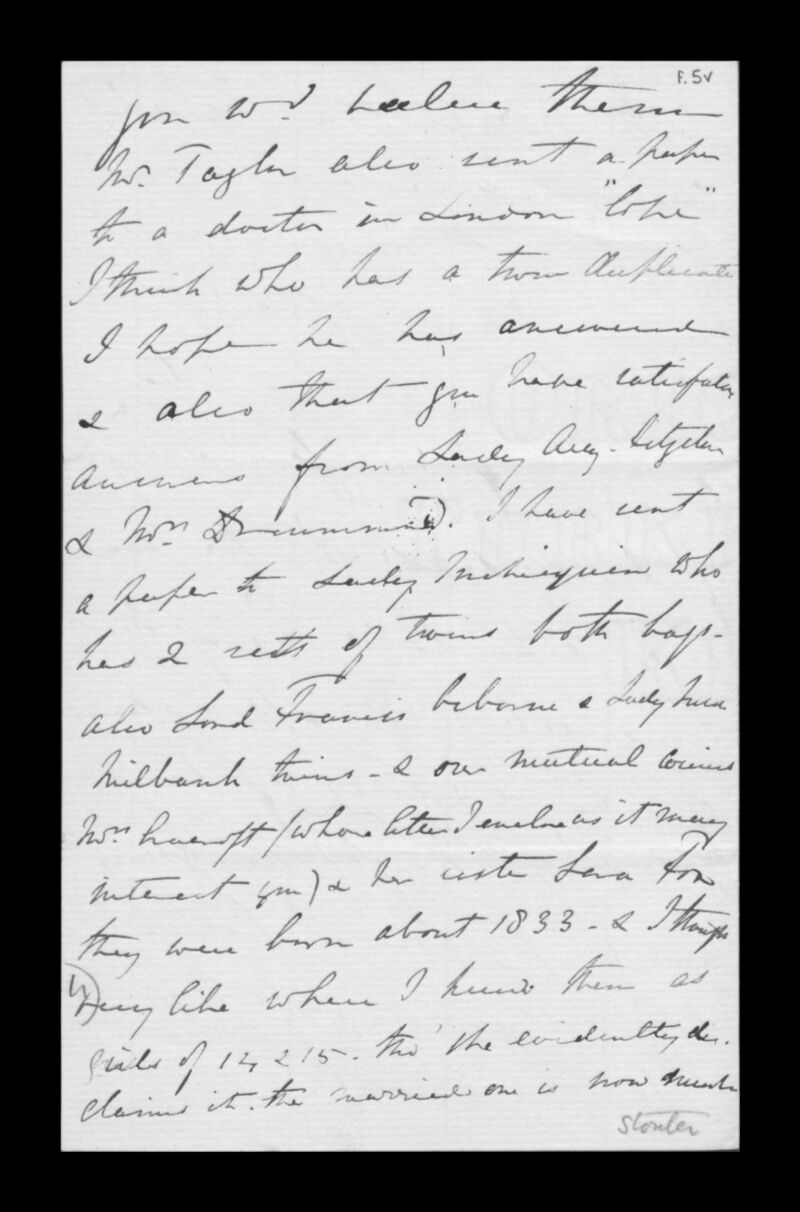 F.5v
you wd. value them
Mr. Taylor also sent a paper
to a doctor in London "Cope"
I think who has a twin duplicate
I hope he has answered
& also that you have satisfactory
answers from Lady Aug.
& Mrs Drummond. I have sent
a paper to Lady Inchiquin who
has 2 setts of twins both boys-
also Lord Francis & Lady
Milbank twins - & our mutual cousins
Mrs (whose letter I enclose as it may
interest you) & her sister Fox
they were born about 1833 - & I thought
very like when I knew them as
girls of 14 & 15 - tho' she evidently dis.
claims it. the married one is now much
stouter